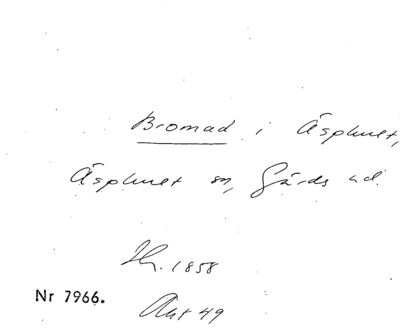 Bromad i Äsphult,
Äsphult sn, Gärds hd.
Hr. 1858
Nr 7966.
Akt 49